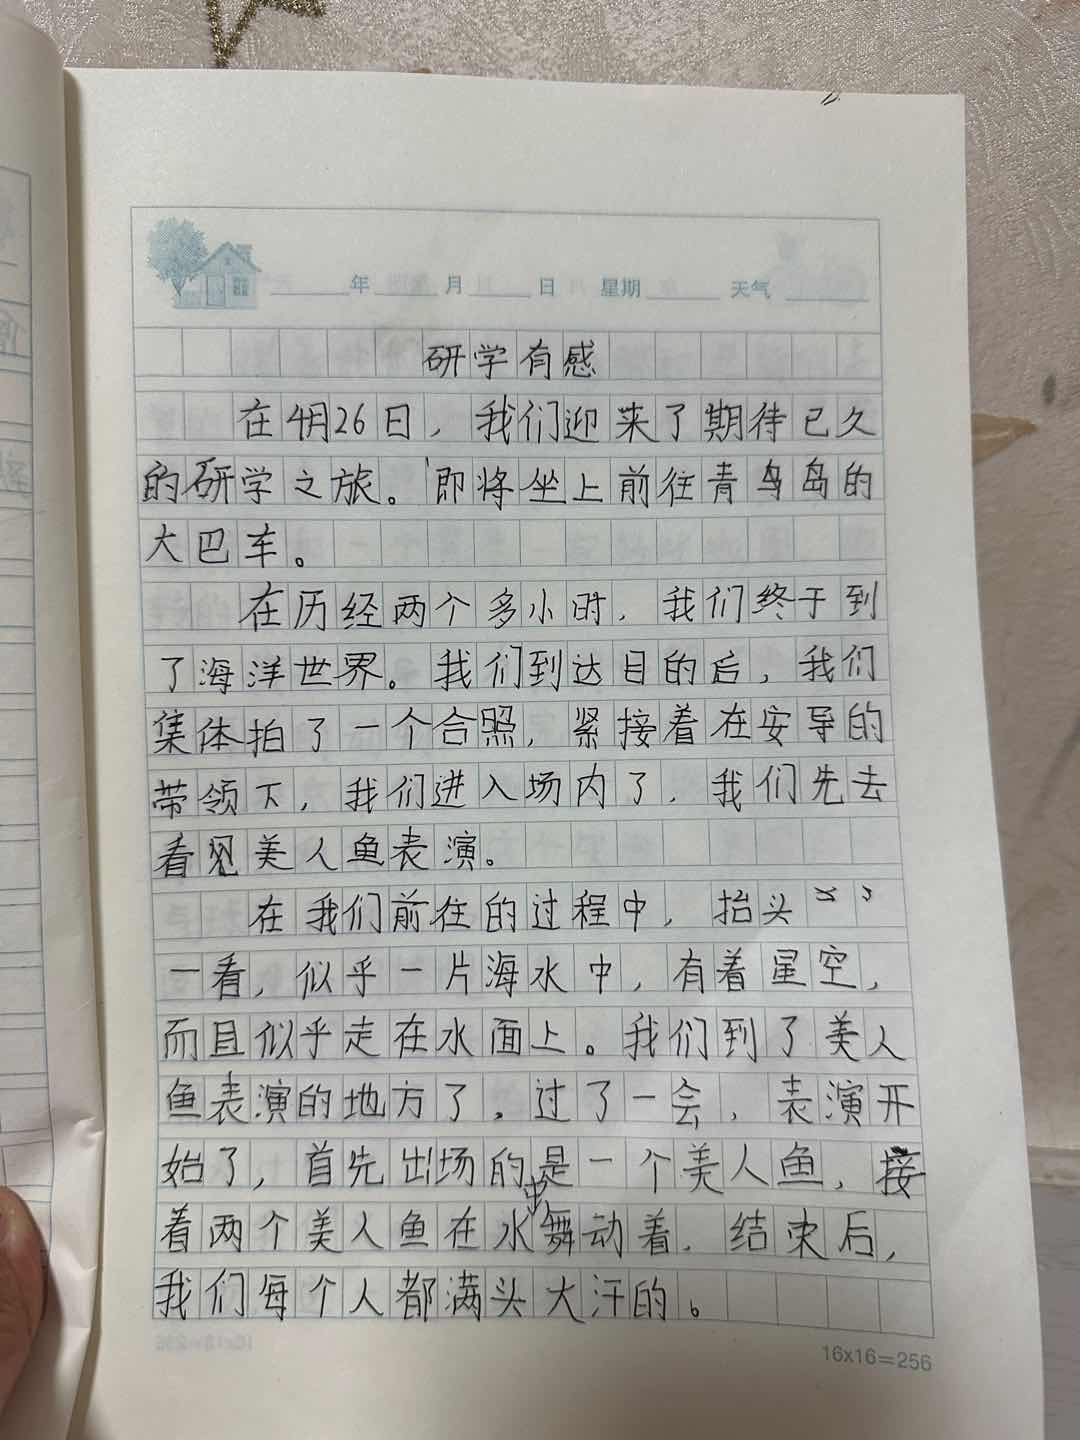 年 月 日 星期 天气
研学有感
在4月26日，我们迎来了期待已久
的研学之旅。即将坐上前往青鸟岛的
大巴车。
在历经两个多小时，我们终于到
了海洋世界。我们到达目的后，我们
集体拍了一个合照，紧接着在安导的
带领下，我们进入场内了，我们先去
看见美人鱼表演。
在我们前往的过程中，抬头
一看，似乎一片海水中，有着星空，
而且似乎走在水面上。我们到了美人
鱼表演的地方了，过了一会，表演开
始了，首先出场的是一个美人鱼，接
着两个美人鱼在水中舞动着，结束后，
我们每个人都满头大汗的。
16x16=256